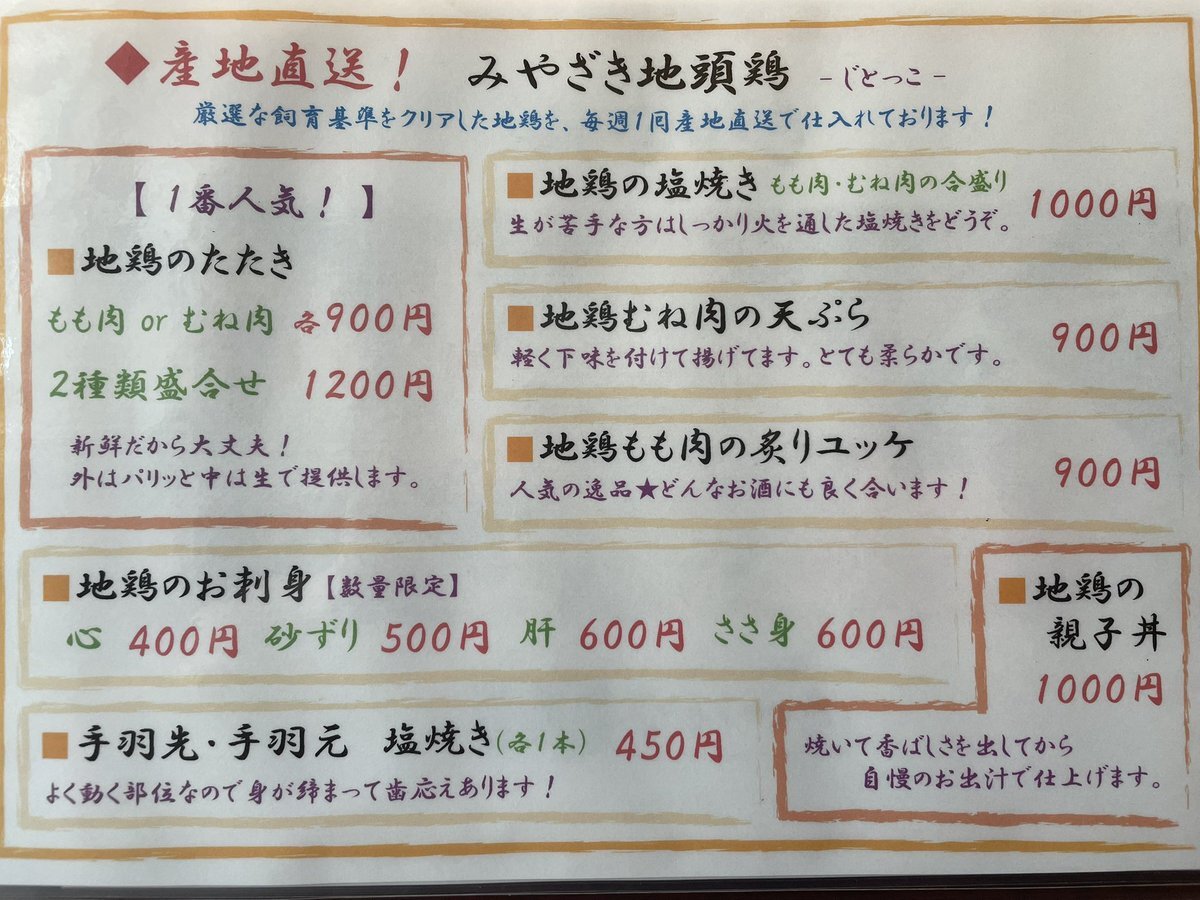 ◆産地直送！ みやざき地頭鶏 -じとっこ-
厳選な飼育基準をクリアした地鶏を、毎週1回産地直送で仕入れております！
【1番人気！】
■地鶏のたたき
もも肉 or むね肉 各900円
2種類盛合せ 1200円
新鮮だから大丈夫！
外はパリッと中は生で提供します。
■地鶏の塩焼き もも肉・むね肉の合盛り 1000円
生が苦手な方はしっかり火を通した塩焼きをどうぞ。
■地鶏むね肉の天ぷら 900円
軽く下味を付けて揚げてます。とても柔らかです。
■地鶏もも肉の炙りユッケ 900円
人気の逸品★どんなお酒にも良く合います！
■地鶏のお刺身【数量限定】
心 400円 砂ずり 500円 肝 600円 ささ身 600円
■手羽先・手羽元 塩焼き(各1本) 450円
よく動く部位なので身が締まって歯応えあります！
■地鶏の
親子丼
1000円
焼いて香ばしさを出してから
自慢のお出汁で仕上げます。